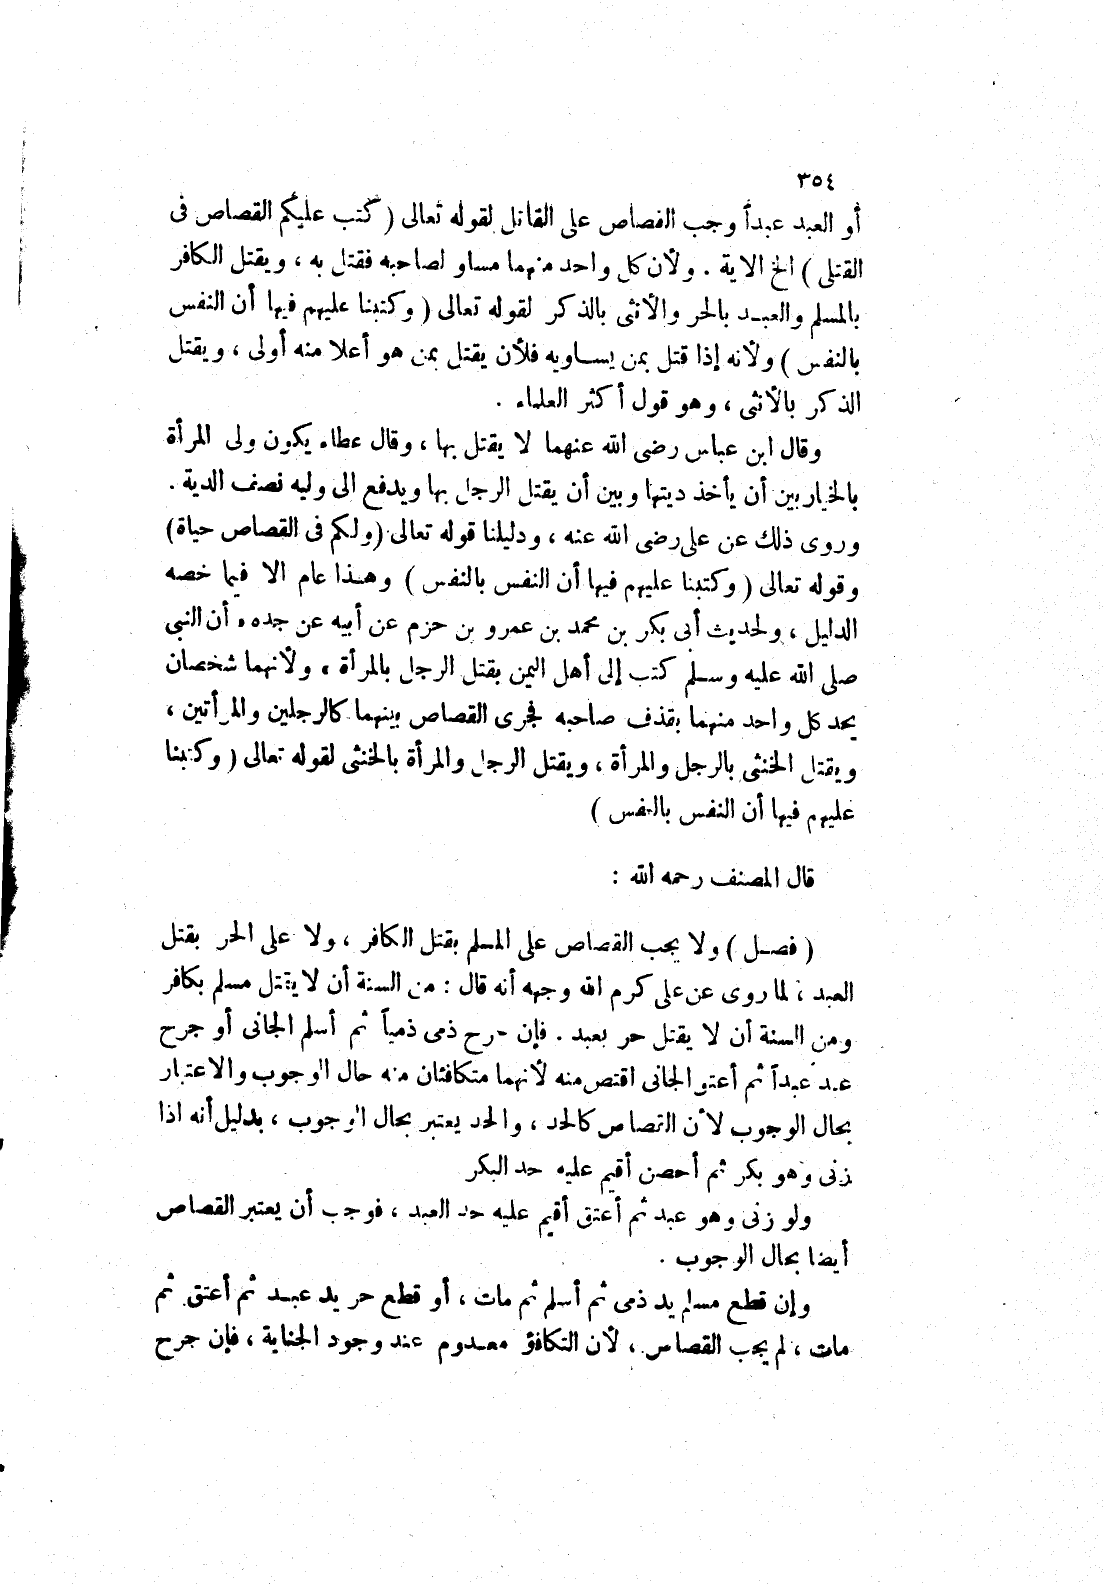 ٣٥٤
أو العبد عبداً وجب القصاص على القاتل لقوله تعالى ( كتب عليكم القصاص فى
القتلى ) الخ الاية . ولأن كل واحد منهما مساو لصاحبه فقتل به ، ويقتل الكافر
بالمسلم والعبد بالحر والأنثى بالذكر لقوله تعالى ( وكتبنا عليهم فيها أن النفس
بالنفس ) ولأنه إذا قتل بمن يساويه فلأن يقتل بمن هو أعلا منه أولى ، ويقتل
الذكر بالأنثى ، وهو قول أكثر العلماء .
وقال ابن عباس رضى الله عنهما لا يقتل بها ، وقال عطاء يكون ولى المرأة
بالخيار بين أن يأخذ ديتها وبين أن يقتل الرجل بها ويدفع الى وليه نصف الدية .
وروى ذلك عن على رضى الله عنه ، ودليلنا قوله تعالى (ولكم فى القصاص حياة)
وقوله تعالى ( وكتبنا عليهم فيها أن النفس بالنفس ) وهذا عام الا فيما خصه
الدليل ، ولحديث أبى بكر بن محمد بن عمرو بن حزم عن أبيه عن جده ، أن النبى
صلى الله عليه وسلم كتب إلى أهل اليمن بقتل الرجل بالمرأة ، ولأنهما شخصان
يحد كل واحد منهما بقذف صاحبه فجرى القصاص بينهما كالرجلين والمرأتين ،
ويقتل الخنثى بالرجل والمرأة ، ويقتل الرجل والمرأة بالخنثى لقوله تعالى ( وكتبنا
عليهم فيها أن النفس بالنفس )
قال المصنف رحمه الله :
( فصل ) ولا يجب القصاص على المسلم بقتل الكافر ، ولا على الحر بقتل
العبد ، لما روى عن على كرم الله وجهه أنه قال : من السنة أن لا يقتل مسلم بكافر
ومن السنة أن لا يقتل حر بعبد . فإن جرح ذمى ذمياً ثم أسلم الجانى أو جرح
عبد عبداً ثم أعتق الجانى اقتص منه لأنهما متكافئان منه حال الوجوب والاعتبار
بحال الوجوب لأن القصاص كالحد ، والحد يعتبر بحال الوجوب ، بدليل أنه اذا
زنى وهو بكر ثم أحصن أقيم عليه حد البكر
ولو زنى وهو عبد ثم أعتق أقيم عليه حد العبد ، فوجب أن يعتبر القصاص
أيضا بحال الوجوب .
وإن قطع مسلم يد ذمى ثم أسلم ثم مات ، أو قطع حر يد عبد ثم أعتق ثم
مات ، لم يجب القصاص ، لأن التكافؤ معدوم عند وجود الجناية ، فإن جرح